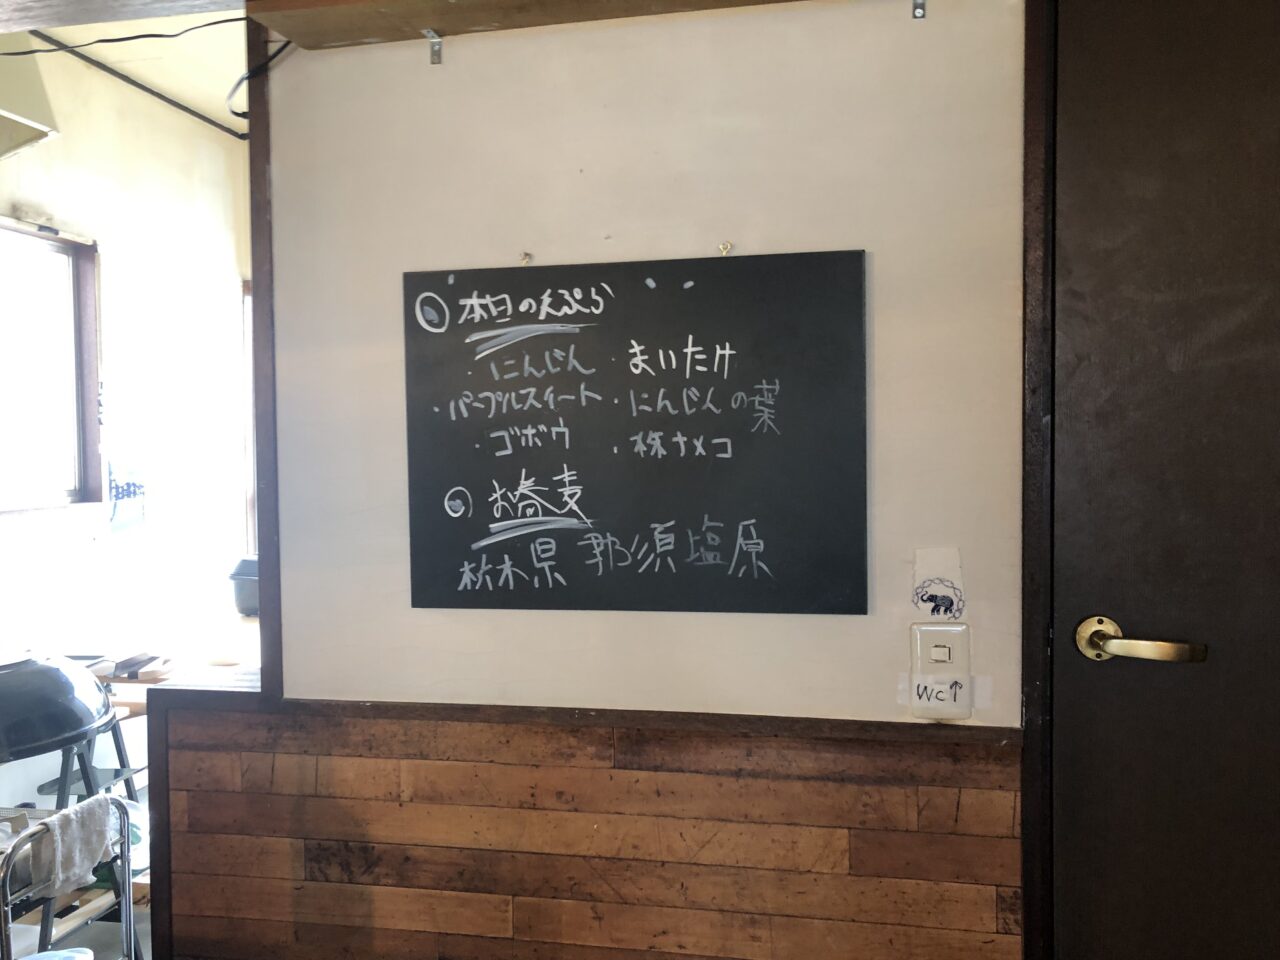 本日の天ぷら
・にんじん ・まいたけ
・パープルスイート ・にんじんの葉
・ゴボウ ・株ナメコ
お蕎麦
栃木県 那須塩原
WC↑